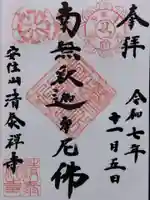 奉拝
令和七年
十一月五日
南無釈迦牟尼佛
安住山清泰禅寺